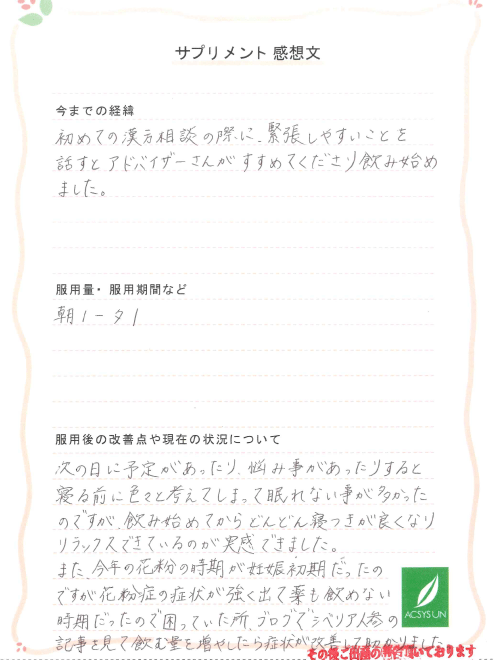 サプリメント 感想文
今までの経緯
初めての漢方相談の際に、緊張しやすいことを
話すとアドバイザーさんがすすめてくださり飲み始め
ました。
服用量・服用期間など
朝1-夕1
服用後の改善点や現在の状況について
次の日に予定があったり、悩み事があったりすると
寝る前に色々と考えてしまって眠れない事が多かった
のですが、飲み始めてからどんどん寝つきが良くなり
リラックスできているのが実感できました。
また、今年の花粉の時期が妊娠初期だったの
ですが花粉症の症状が強く出て薬も飲めない
時期だったので困っていた所、ブログでシベリア人参の
記事を見て飲む量を増やしたら症状が改善して助かりました
ACSYSUN
その後ご出産の報告頂いております